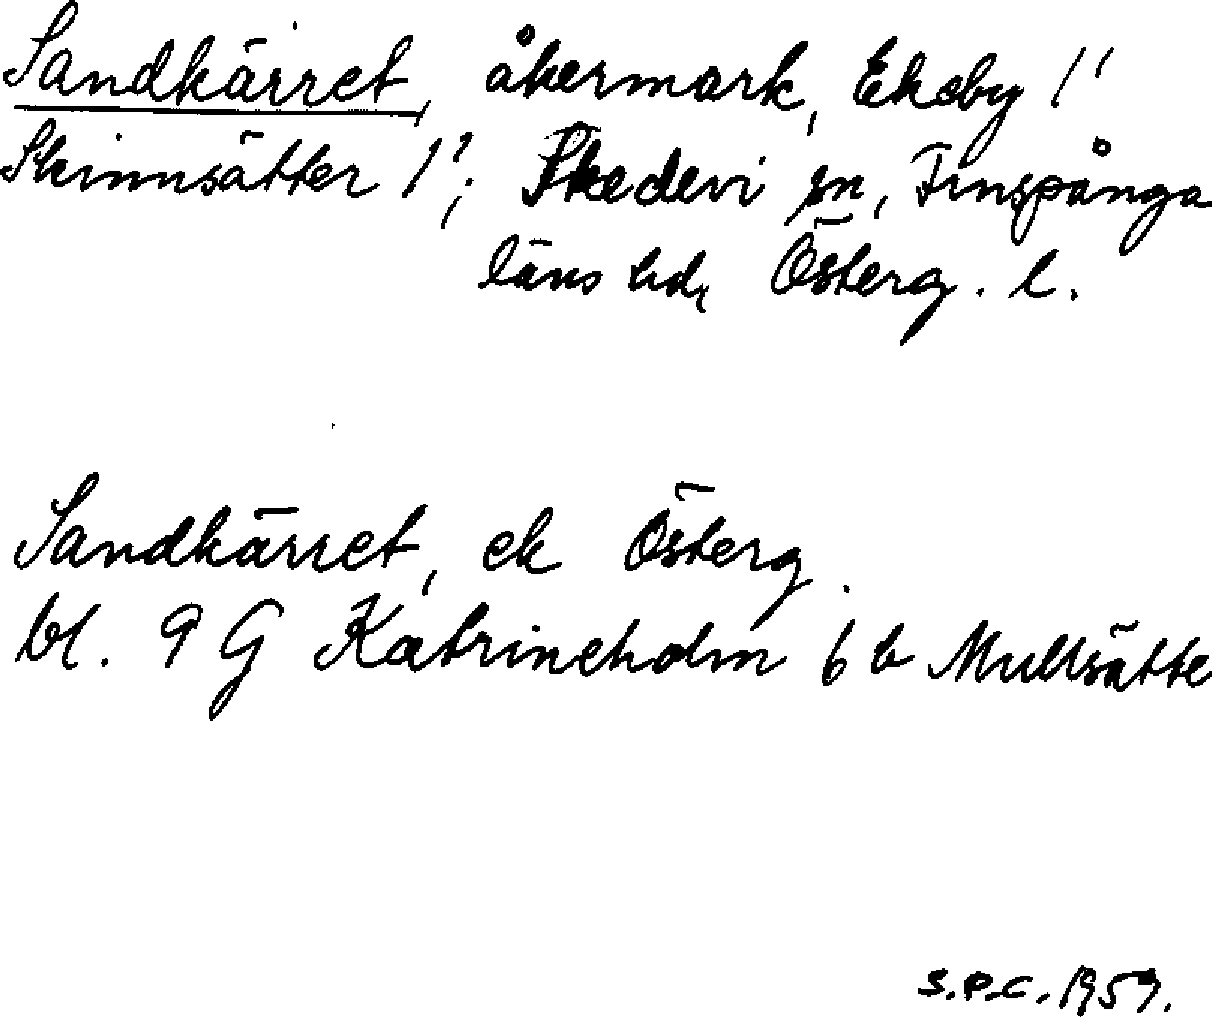 Sandkärret, åkermark, Ekeby 1'
Skinnsätter 1'; Skedevi sn, Finspånga
läns hd, Österg. l.
Sandkärret, ek Österg.
bl. 9 G Katrineholm 6 b Mullsätte
S.P.C. 1959.